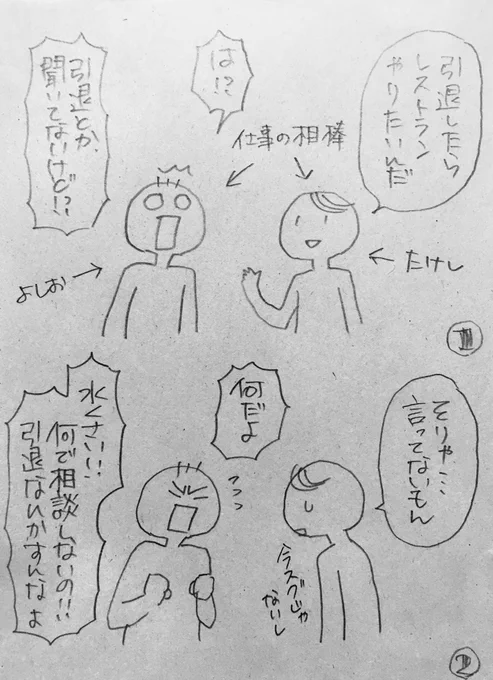 引退したら
レストラン
やりたいんだ
は!?
引退とか、
聞いてないけど!?
仕事の相棒
たけし
よしお
1
そりゃ…
言ってないもん
何だよ
水くさい!!
何で相談しないの!!
引退ないかすんなよ
今スグじゃ
ないし
2